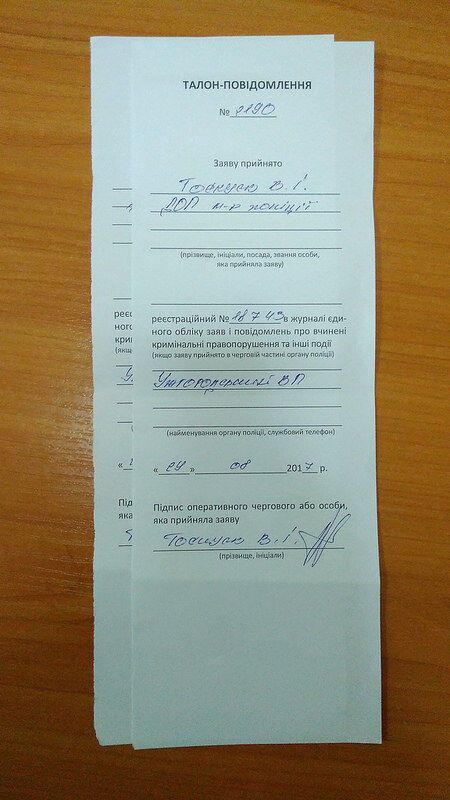 ТАЛОН-ПОВІДОМЛЕННЯ
№ 2190
Заяву прийнято
В.І.
ДОП м-р поліції
(прізвище, ініціали, посада, звання особи,
яка прийняла заяву)
реєстраційний № 18743 в журналі єди-
ного обліку заяв і повідомлень про вчинені
кримінальні правопорушення та інші події
(якщо заяву прийнято в черговій частині органу поліції)
Ужгородський ВП
(найменування органу поліції, службовий телефон)
« 29 » 08 2017 р.
Підпис оперативного чергового або особи,
яка прийняла заяву
В.І.
(прізвище, ініціали)